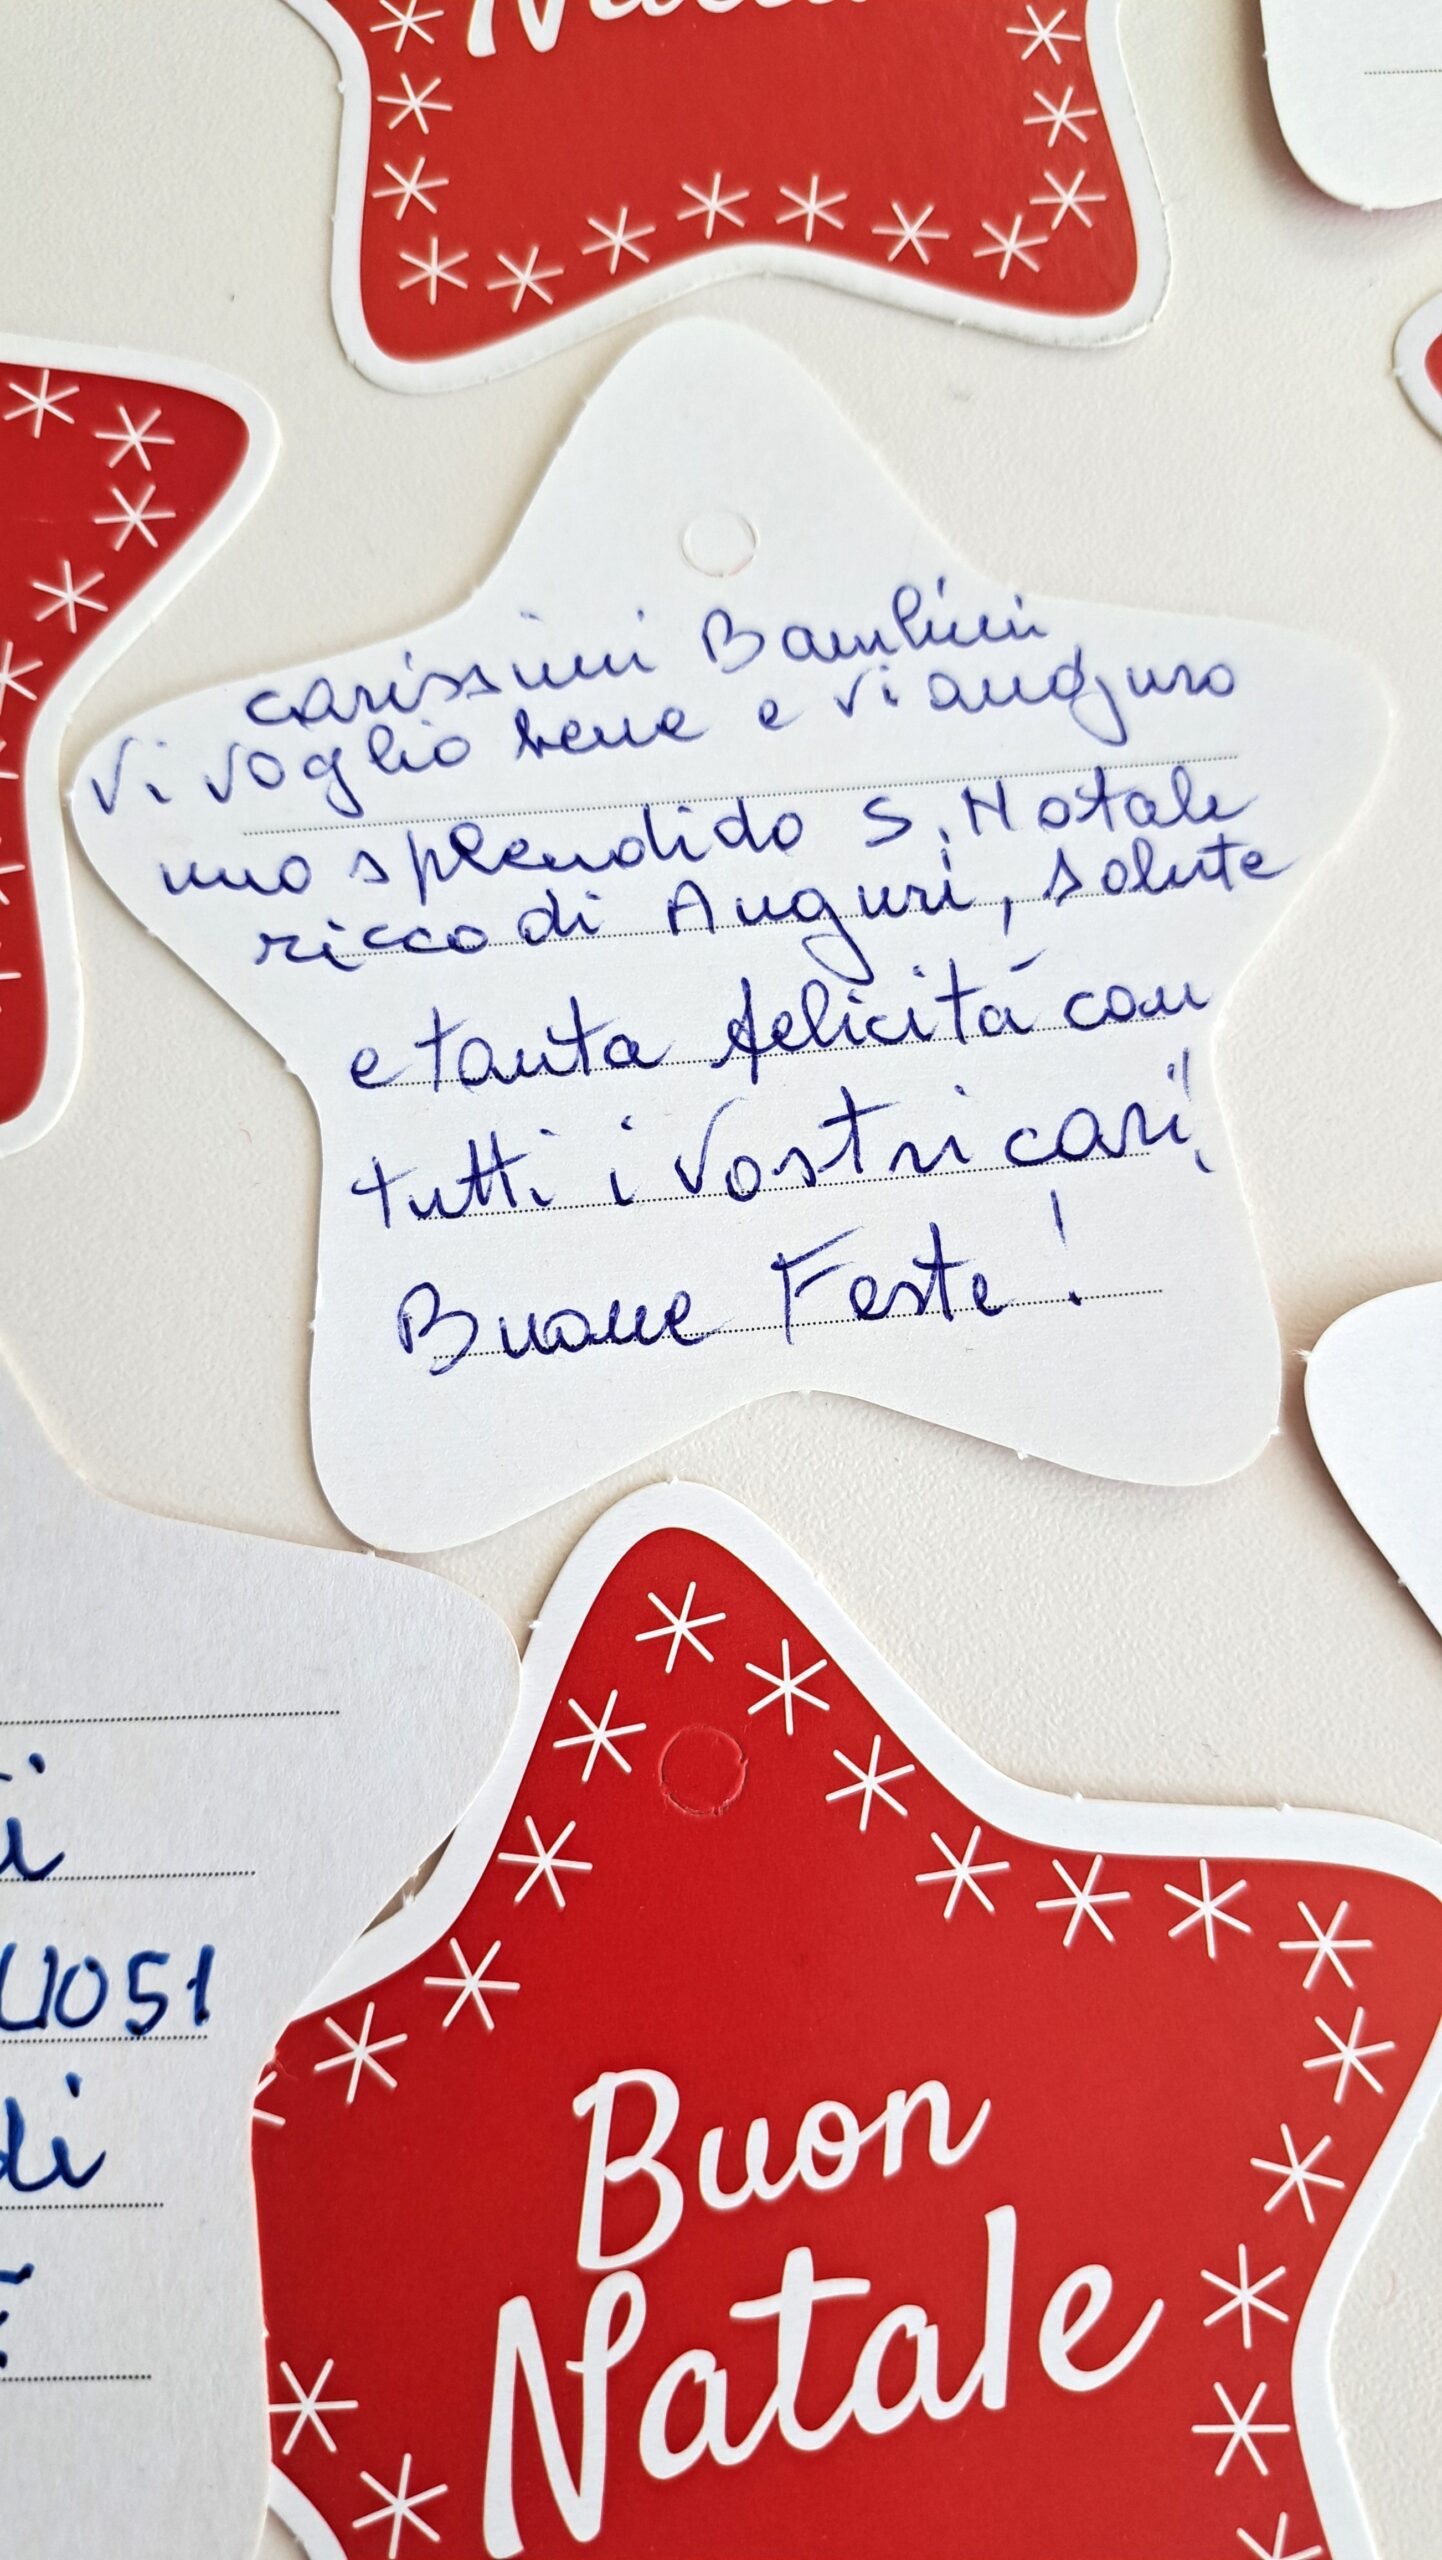 Natale
carissimi Bambini
Vi voglio bene e vi auguro
uno splendido S. Natale
ricco di Auguri, salute
e tanta felicità con
tutti i Vostri cari!!
Buone Feste!
uosi
di
Buon
Natale